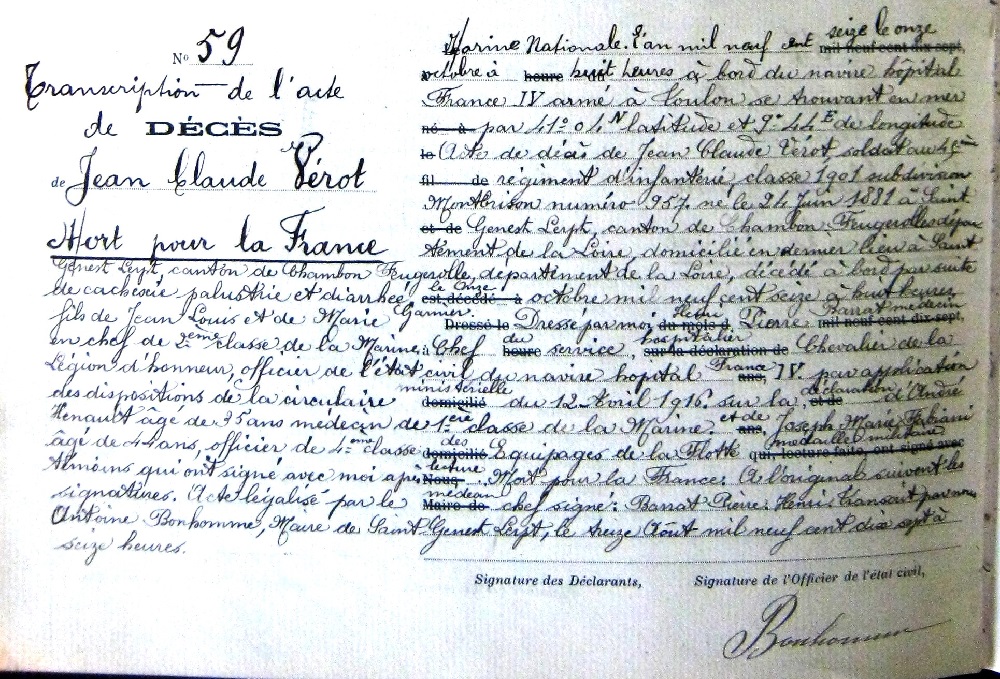 No 59
Transcription de l'acte
de DÉCÈS
de Jean Claude Vérot
Mort pour la France
Marine Nationale. L'an mil neuf cent seize le onze mil neuf cent dix sept,
octobre à heure huit heures à bord du navire hôpital
France IV armé à Toulon se trouvant en mer
né à par 41° 04 N latitude et 9° 44 E de longitude
le Acte de décès de Jean Claude Vérot, soldat au
fil de régiment d'infanterie, classe 1901 subdivision
Montbrison numéro 957. né le 24 Juin 1881 à Saint
et de Genest Lerpt, canton de Chambon Feugerolles dépar
tement de la Loire, domicilié en dernier lieu à Saint
Genest Lerpt, canton de Chambon Feugerolle, département de la Loire, décédé à bord par suite
de cachexie palustre et diarrhée est décédé à le onze octobre mil neuf cent seize à huit heures
fils de Jean Louis et de Marie Garnier. Dressé le Dressé par moi, du mois d Henri Pierre Barrat médecin mil neuf cent dix sept,
en chef de 2ème classe de la Marine à Chef du heure service hospitalier, sur la déclaration de Chevalier de la
Légion d'honneur, officier de l'état civil du navire hopital France ans, IV. par application
des dispositions de la circulaire ministérielle domicilié du 12 Avril 1916. sur la déclaration et de d'André
Henault âgé de 35 ans médecin de 1ère classe de la Marine. et de ans, Joseph Marie Fabiani
âgé de 44 ans, officier de 4ème classe des domicilié Equipages de la Flotte médaille militaire qui, lecture faite, ont signé avec
témoins qui ont signé avec moi après lecture Nous Mort pour la France. A l'original suivent les
signatures. Acte légalisé par le médecin Maire de chef signé: Barrat Pierre Henri. Transcrit par nous
Antoine Bonhomme, Maire de Saint Genest Lerpt, le treize Août mil neuf cent dix sept à
seize heures.
Signature des Déclarants, Signature de l'Officier de l'état civil,
Bonhomme